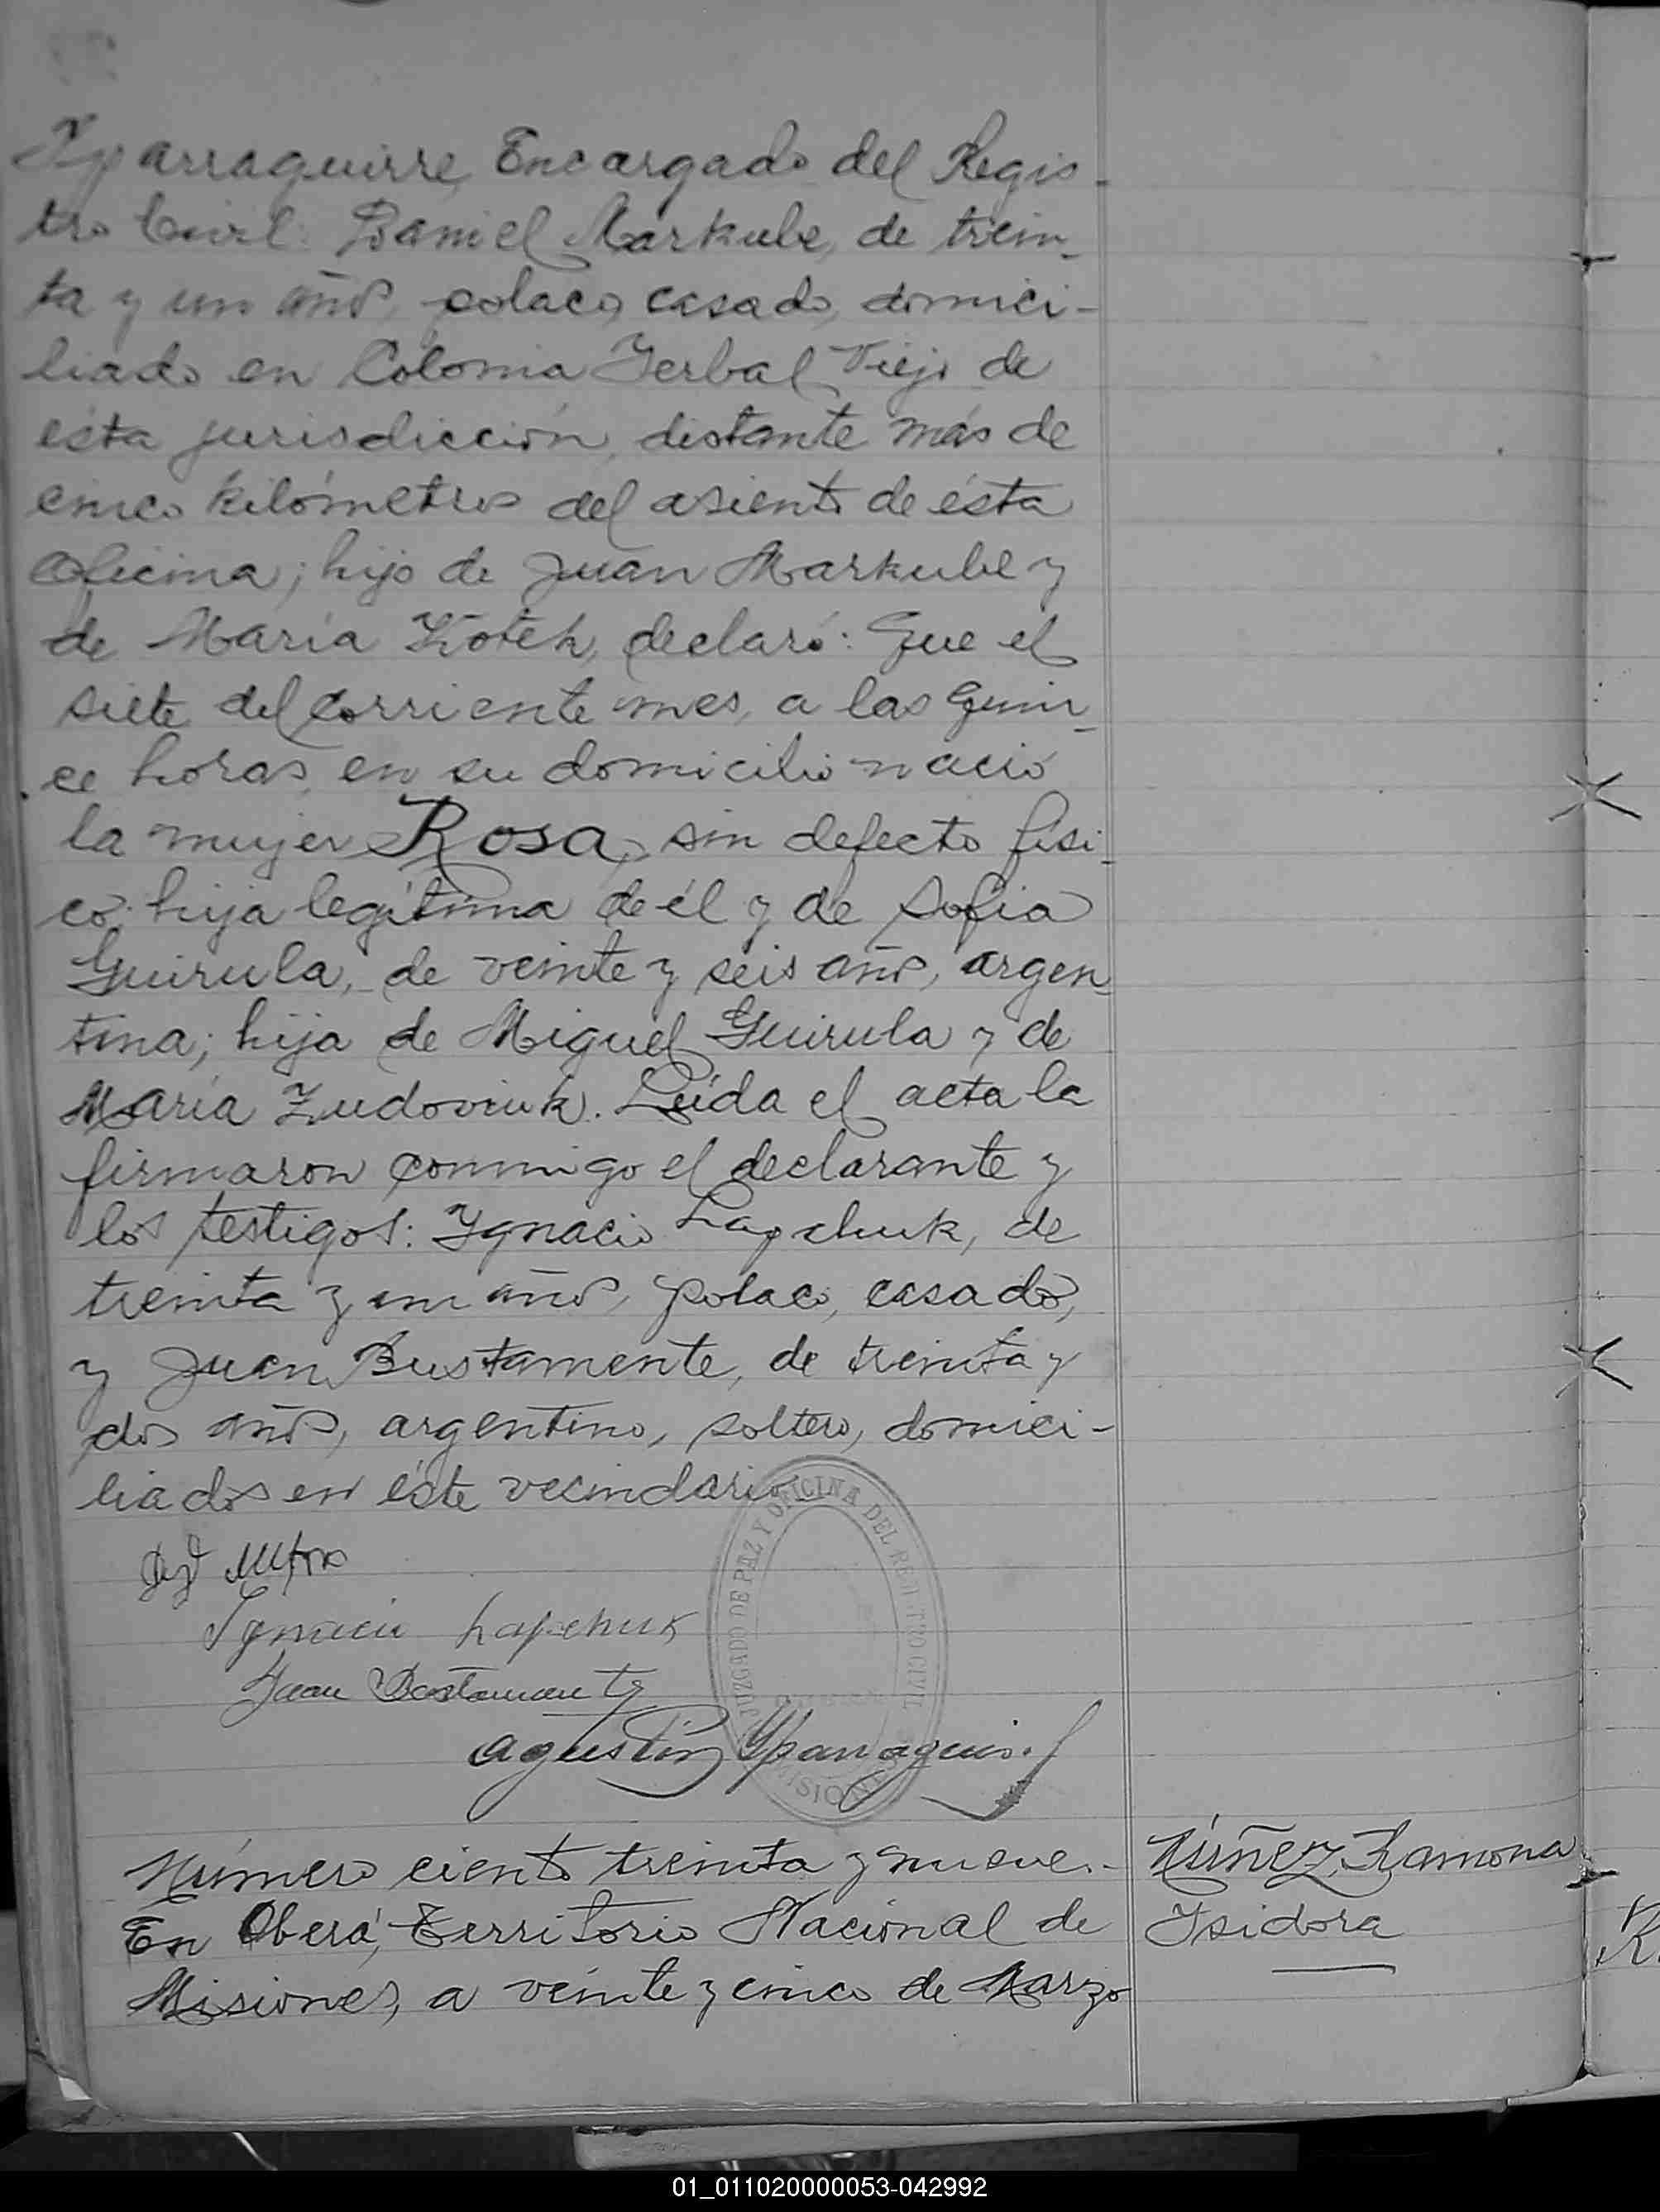 Yparraguirre, Encargado del Regis-
tro Civil: Daniel Markube, de trein-
ta y un años, polaco, casado, domici-
liado en Colonia Yerbal Viejo de
ésta jurisdicción, distante más de
cinco kilómetros del asiento de ésta
Oficina; hijo de Juan Markube y
de María Kotek, declaró: Que el
siete del corriente mes, a las quin-
ce horas, en su domicilio nació
la mujer Rosa, sin defecto físi-
co; hija legítima de él y de Sofía
Guirula, de veinte y seis años, argen-
tina; hija de Miguel Guirula y de
María Zudoviuk. Leída el acta la
firmaron conmigo el declarante y
los testigos: Ygnacio Lapchuk, de
treinta y un años, polaco, casado,
y Juan Bustamente, de treinta y
dos años, argentino, soltero, domici-
liados en éste vecindario
Ignacio Lapchuk
Juan Bustamante
Agustín Yparraguirre
JUZGADO DE PAZ Y OFICINA DEL REGISTRO CIVIL
MISIONES
Número ciento treinta y nueve.-
En Oberá, Territorio Nacional de
Misiones, a veinte y cinco de Marzo
Núñez, Ramona
Isidora
01_011020000053-042992